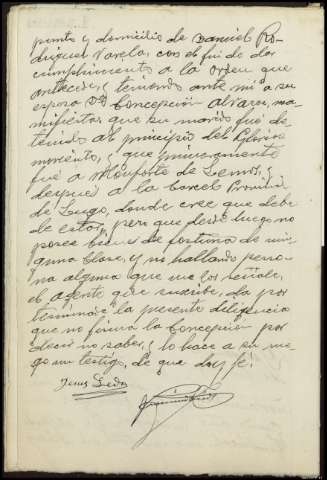 ponto y domicilio de Manuel Ro-
driguez Varela, con el fin de dar
cumplimiento a la orden que
antecede, y teniendo ante mi a su
esposa Dª Concepción Alvarez, ma-
nifiesta que su marido fue de-
tenido al principio del Glorioso
movimiento, y que primeramente
fué a Monforte de Lemos, y
despues a la Carcel Provincial
de Lugo, donde cree que debe
de estar, pero que desde luego no
posee bienes de fortuna de nin-
guna clase, y no hallado perso-
na alguna que me los señale,
el agente que suscribe, da por
terminada la presente diligencia
que no firma la Concepción por
decir no saber, y lo hace a su rue-
go un testigo, de que doy fé.
Jesus Ledo